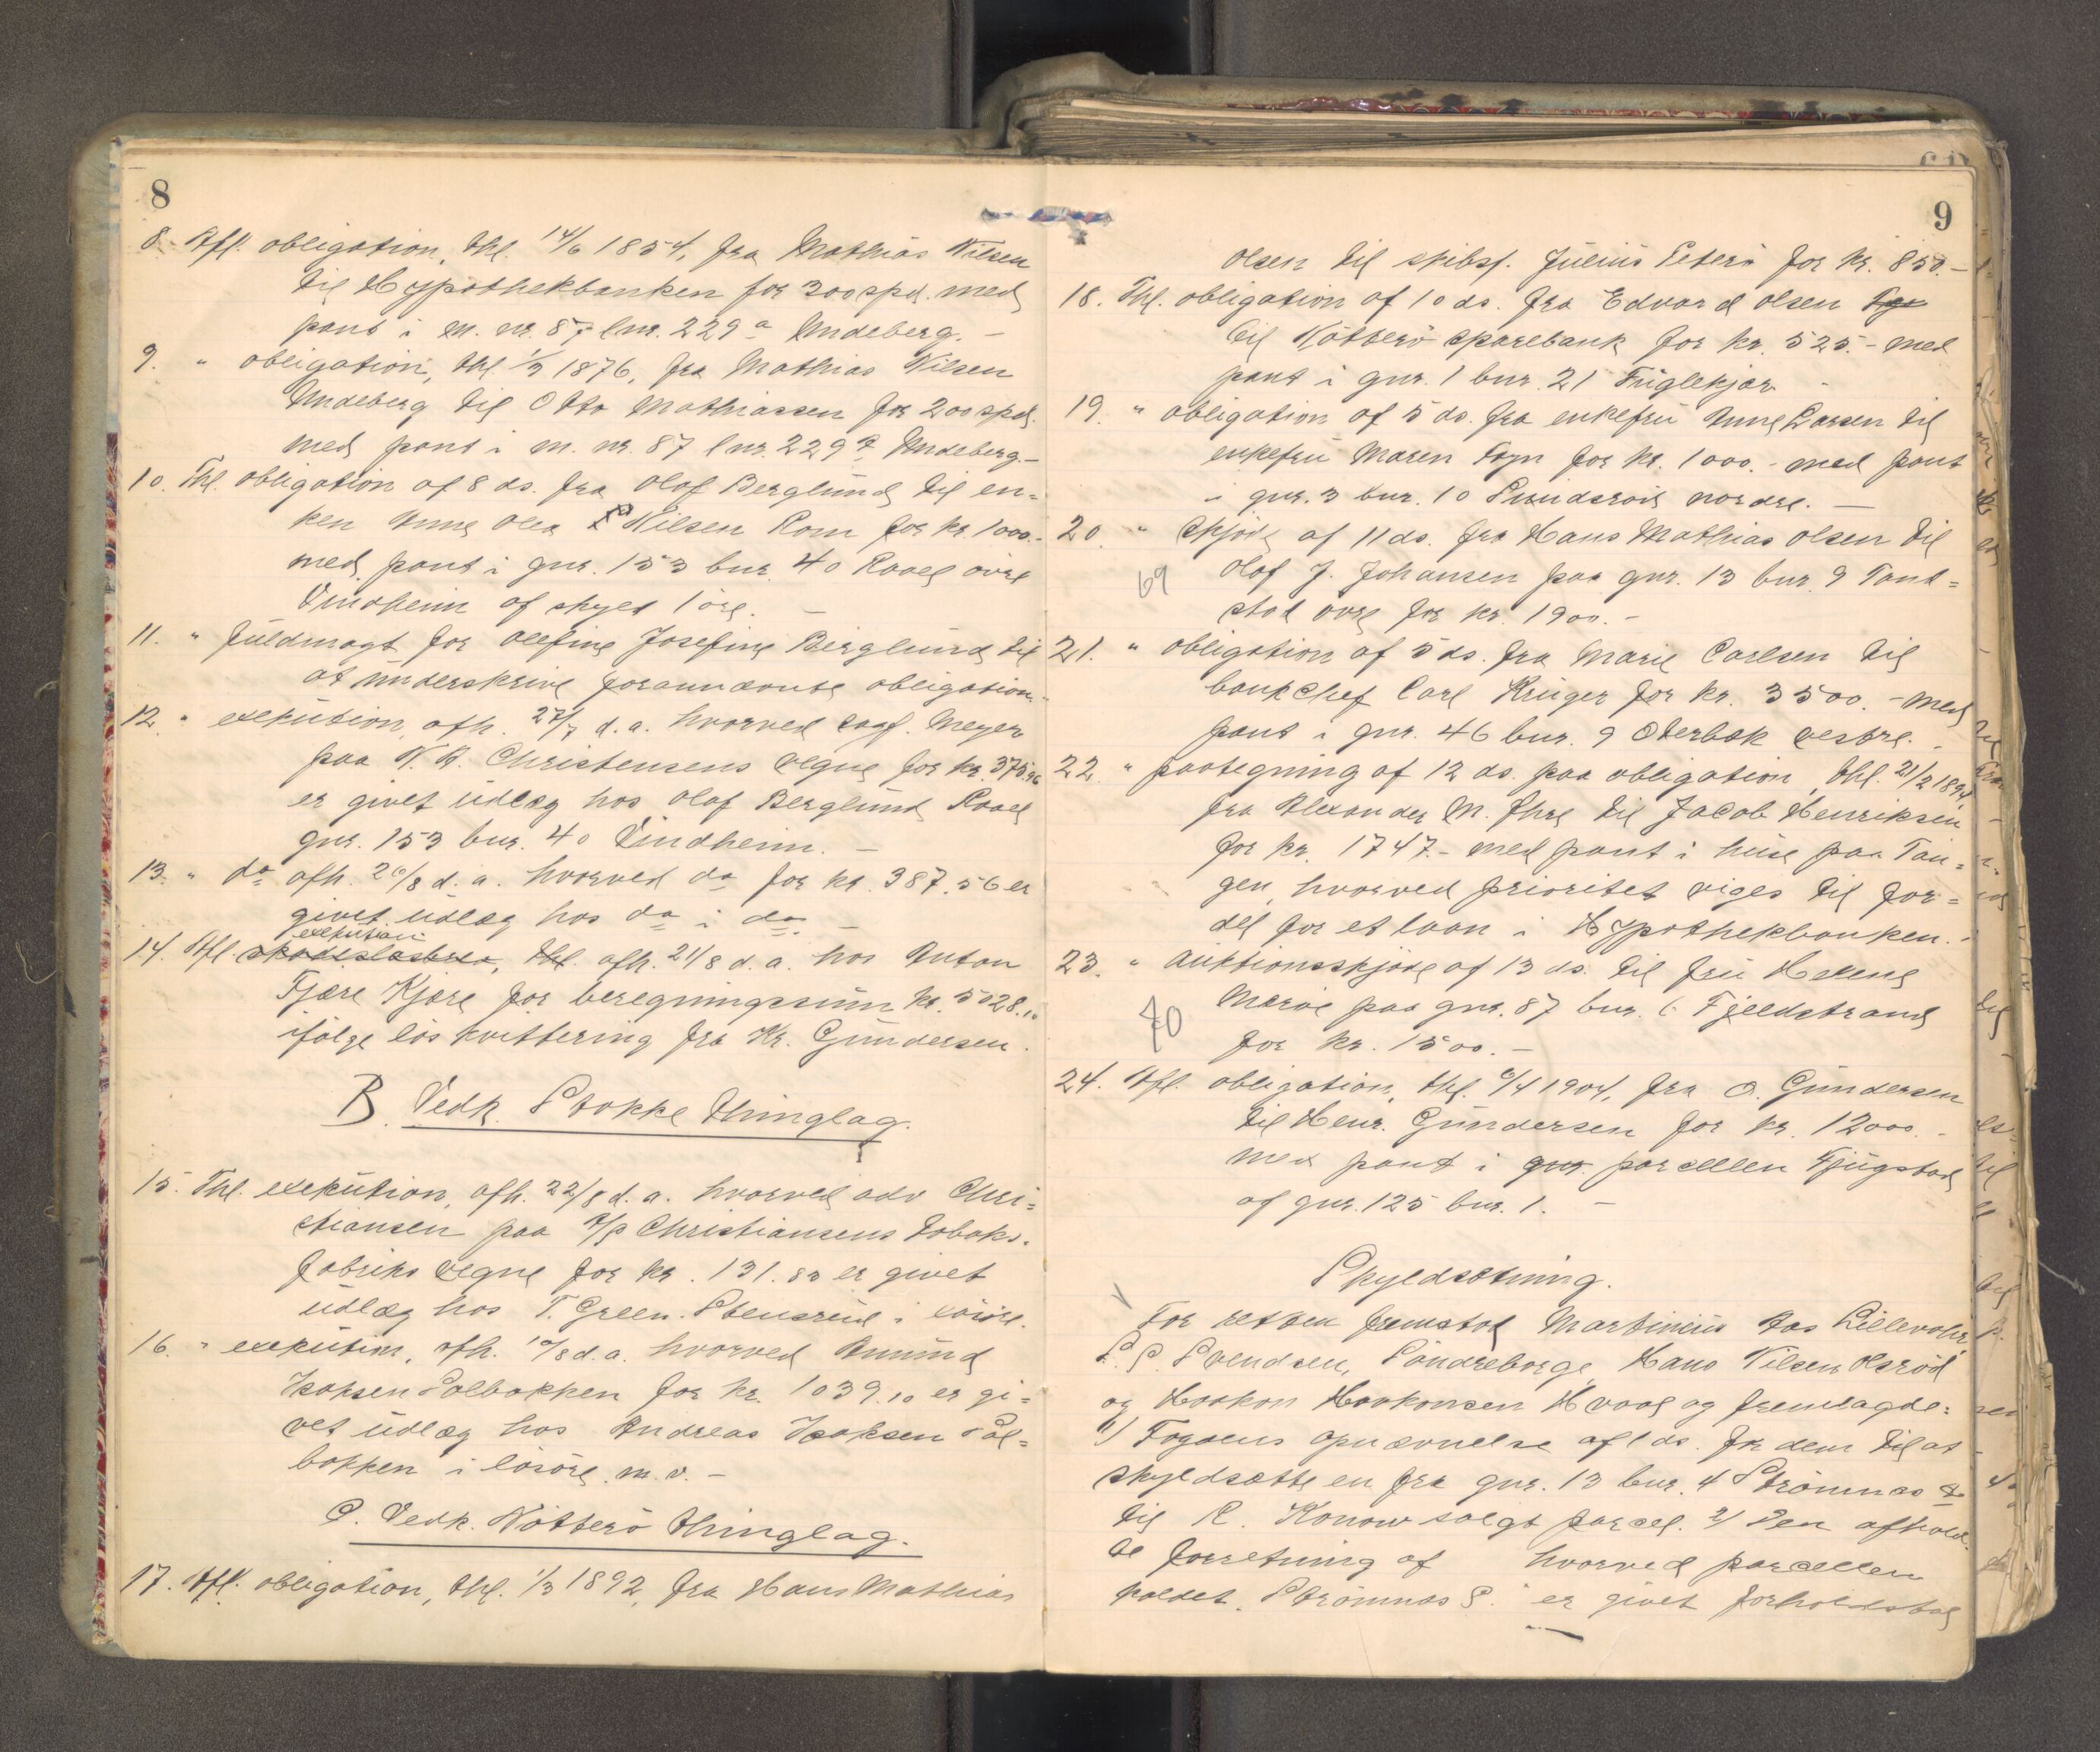 8
8. Afl. obligation, thl. 14/6 1854, fra Mathias Nilsen
til Hypothekbanken for 300 spd. med
pant i m. nr. 87 lnr. 229a Undeberg. –
9. " obligation, thl. 1/3 1876, fra Mathias Nilsen
Undeberg til Otto Mathiassen for 200 spd.
med pant i m. nr. 87 lnr. 229a Undeberg. –
10. Thl. obligation af 8 ds. fra Olaf Berglund til en=
ken Anne Olea Nilsen Rom for kr. 1000.–
med pant i gnr. 153 bnr. 40 Raael övre
Vindheim af skyld 1 öre. –
11. " fuldmagt for Olefine Josefine Berglund til
at underskrive forannævnte obligation.–
12. " exekution, afh. 27/7 d. a. hvorved sagf. Meyer
paa N. A. Christensens vegne for kr. 375.96
er givet udlæg hos Olaf Berglund Raael
gnr. 153 bnr. 40 Vindheim. –
13. " do afh. 26/8 d. a. hvorved do for kr. 387.56 er
givet udlæg hos do i do. –
exekution
14. Afl. thl. afh. 21/8 d. a. hos Anton
Fjære Kjære for beregningssum kr. 5028.10
ifölge lös kvittering fra Kr. Gundersen.
B. Vedk. Stokke Thinglag.
15. Thl. exekution, afh. 22/8 d. a. hvorved adv. Chri=
stiansen paa A/S Christiansens Tobaks.
fabriks vegne for kr. 131.83 er givet
udlæg hos T. Green. Stensrud i lösöre.
16. " exekution, afh. 10/8 d. a. hvorved Amund
Isaksen Solbakken for kr. 1039.10 er gi=
vet udlæg hos Andreas Isaksen Sol=
bakken i lösöre m. v. –
C. Vedk. Nötterö Thinglag.
17. Afl. obligation, thl. 1/3 1892, fra Hans Mathias
9
Olsen til skibsf. Julius Peters for kr. 850.–
18. Thl. obligation af 10 ds. fra Edvard Olsen
til Nötterö Sparebank for kr. 525.– med
pant i gnr. 1 bnr. 21 Fuglekjær –
19. " obligation af 5 ds. fra enkefru Anne Larsen til
enkefru Maren Foyn for kr. 1000.– med pant
i gnr. 3 bnr. 10 Sundsröd nordre. –
20. " Skjöde af 11 ds. fra Hans Mathias Olsen til
69
Olaf J. Johansen paa gnr. 13 bnr. 9 Tand=
stad övre for kr. 1900.–
21. " obligation af 5 ds. fra Marie Carlsen til
bankchef Carl Krüger for kr. 3500.– med
pant i gnr. 46 bnr. 9 Oterbæk vestre. –
22. " paategning af 12 ds. paa obligation, thl. 21/2 1894,
fra Alexander M. Ihre til Jacob Henriksen
for kr. 1747.– med pant i huse paa Tan=
gen, hvorved prioritet viges til for=
del for et laan i Hypothekbanken.–
23. " Auktionsskjöde af 13 ds. til fru Helene
70
Maröe paa gnr. 87 bnr. 6 Fjeldstrand
for kr. 1500.–
24. Afl. obligation, thl. 6/4 1904, fra O. Gundersen
til Henr. Gundersen for kr. 12000. –
med pant i gnr. parcellen Fjugstad
af gnr. 125 bnr. 1. –
Skyldsætning.
For retten fremstod Martinius Aas Lillevahr,
S. S. Svendsen, Söndreborge, Hans Nilsen Olsröd
og Haakon Haakonsen Hvaal og fremlagde:
1/ Fogdens opnævnelse af 1 ds. for dem til at
skyldsætte en fra gnr. 13 bnr. 4 Strömnæs
til R. Konow solgt parcel. 2/ Den afhold=
te forretning af hvorved parcellen
kaldet Strömnæs S. er givet forholdstal